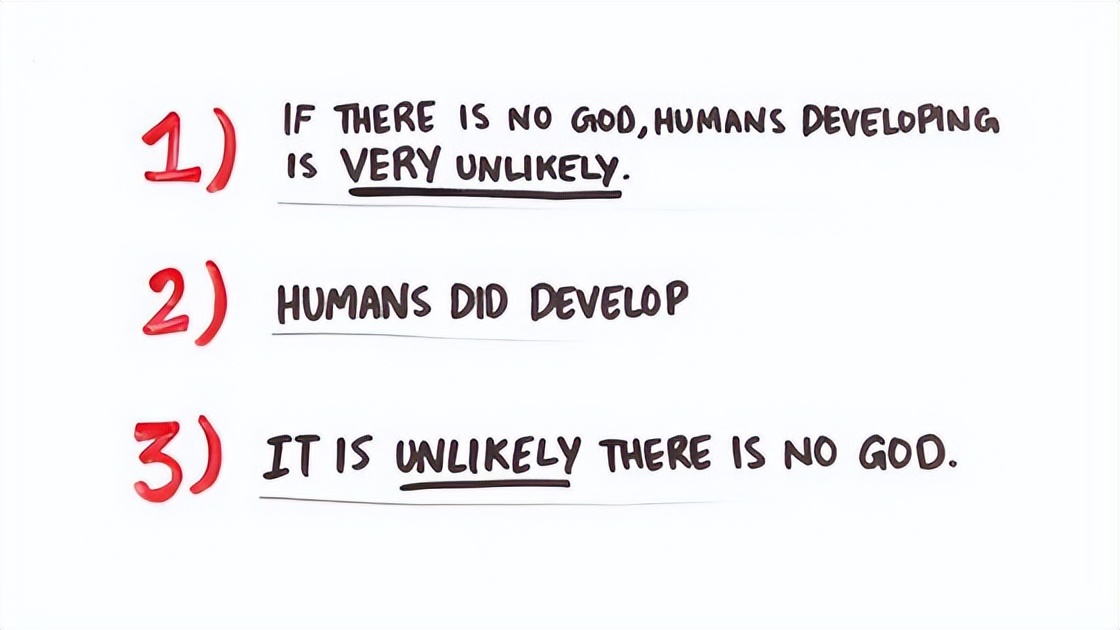 1) IF THERE IS NO GOD, HUMANS DEVELOPING
IS VERY UNLIKELY.
2) HUMANS DID DEVELOP
3) IT IS UNLIKELY THERE IS NO GOD.